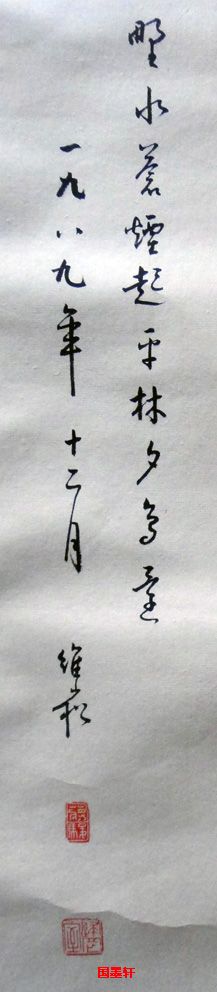 野水蒼煙起平林夕鳥還
一九八九年十二月 維崧
国墨轩